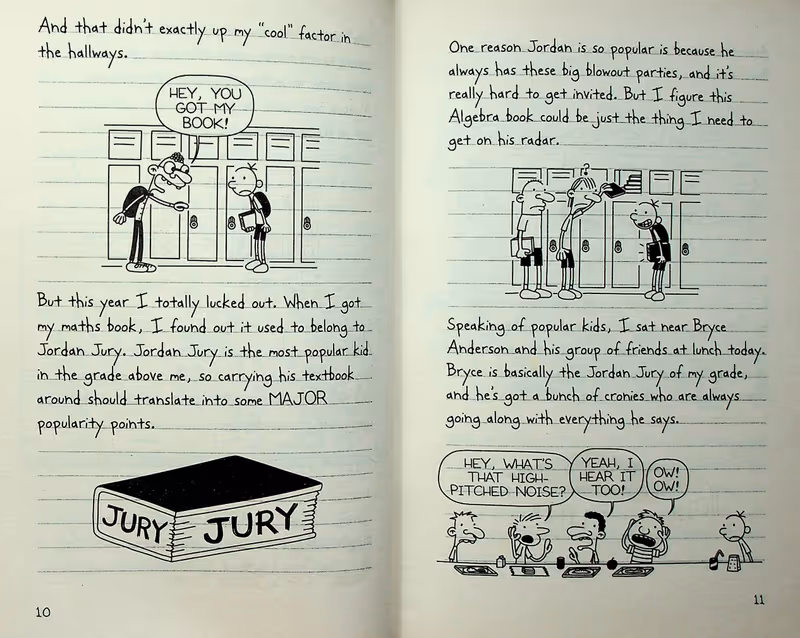 And that didn't exactly up my "cool" factor in
the hallways.
HEY, YOU
GOT MY
BOOK!
But this year I totally lucked out. When I got
my maths book, I found out it used to belong to
Jordan Jury. Jordan Jury is the most popular kid
in the grade above me, so carrying his textbook
around should translate into some MAJOR
popularity points.
JURY
JURY
10
One reason Jordan is so popular is because he
always has these big blowout parties, and it's
really hard to get invited. But I figure this
Algebra book could be just the thing I need to
get on his radar.
?
Speaking of popular kids, I sat near Bryce
Anderson and his group of friends at lunch today.
Bryce is basically the Jordan Jury of my grade,
and he's got a bunch of cronies who are always
going along with everything he says.
HEY, WHAT'S
THAT HIGH-
PITCHED NOISE?
YEAH, I
HEAR IT
TOO!
OW!
OW!
11